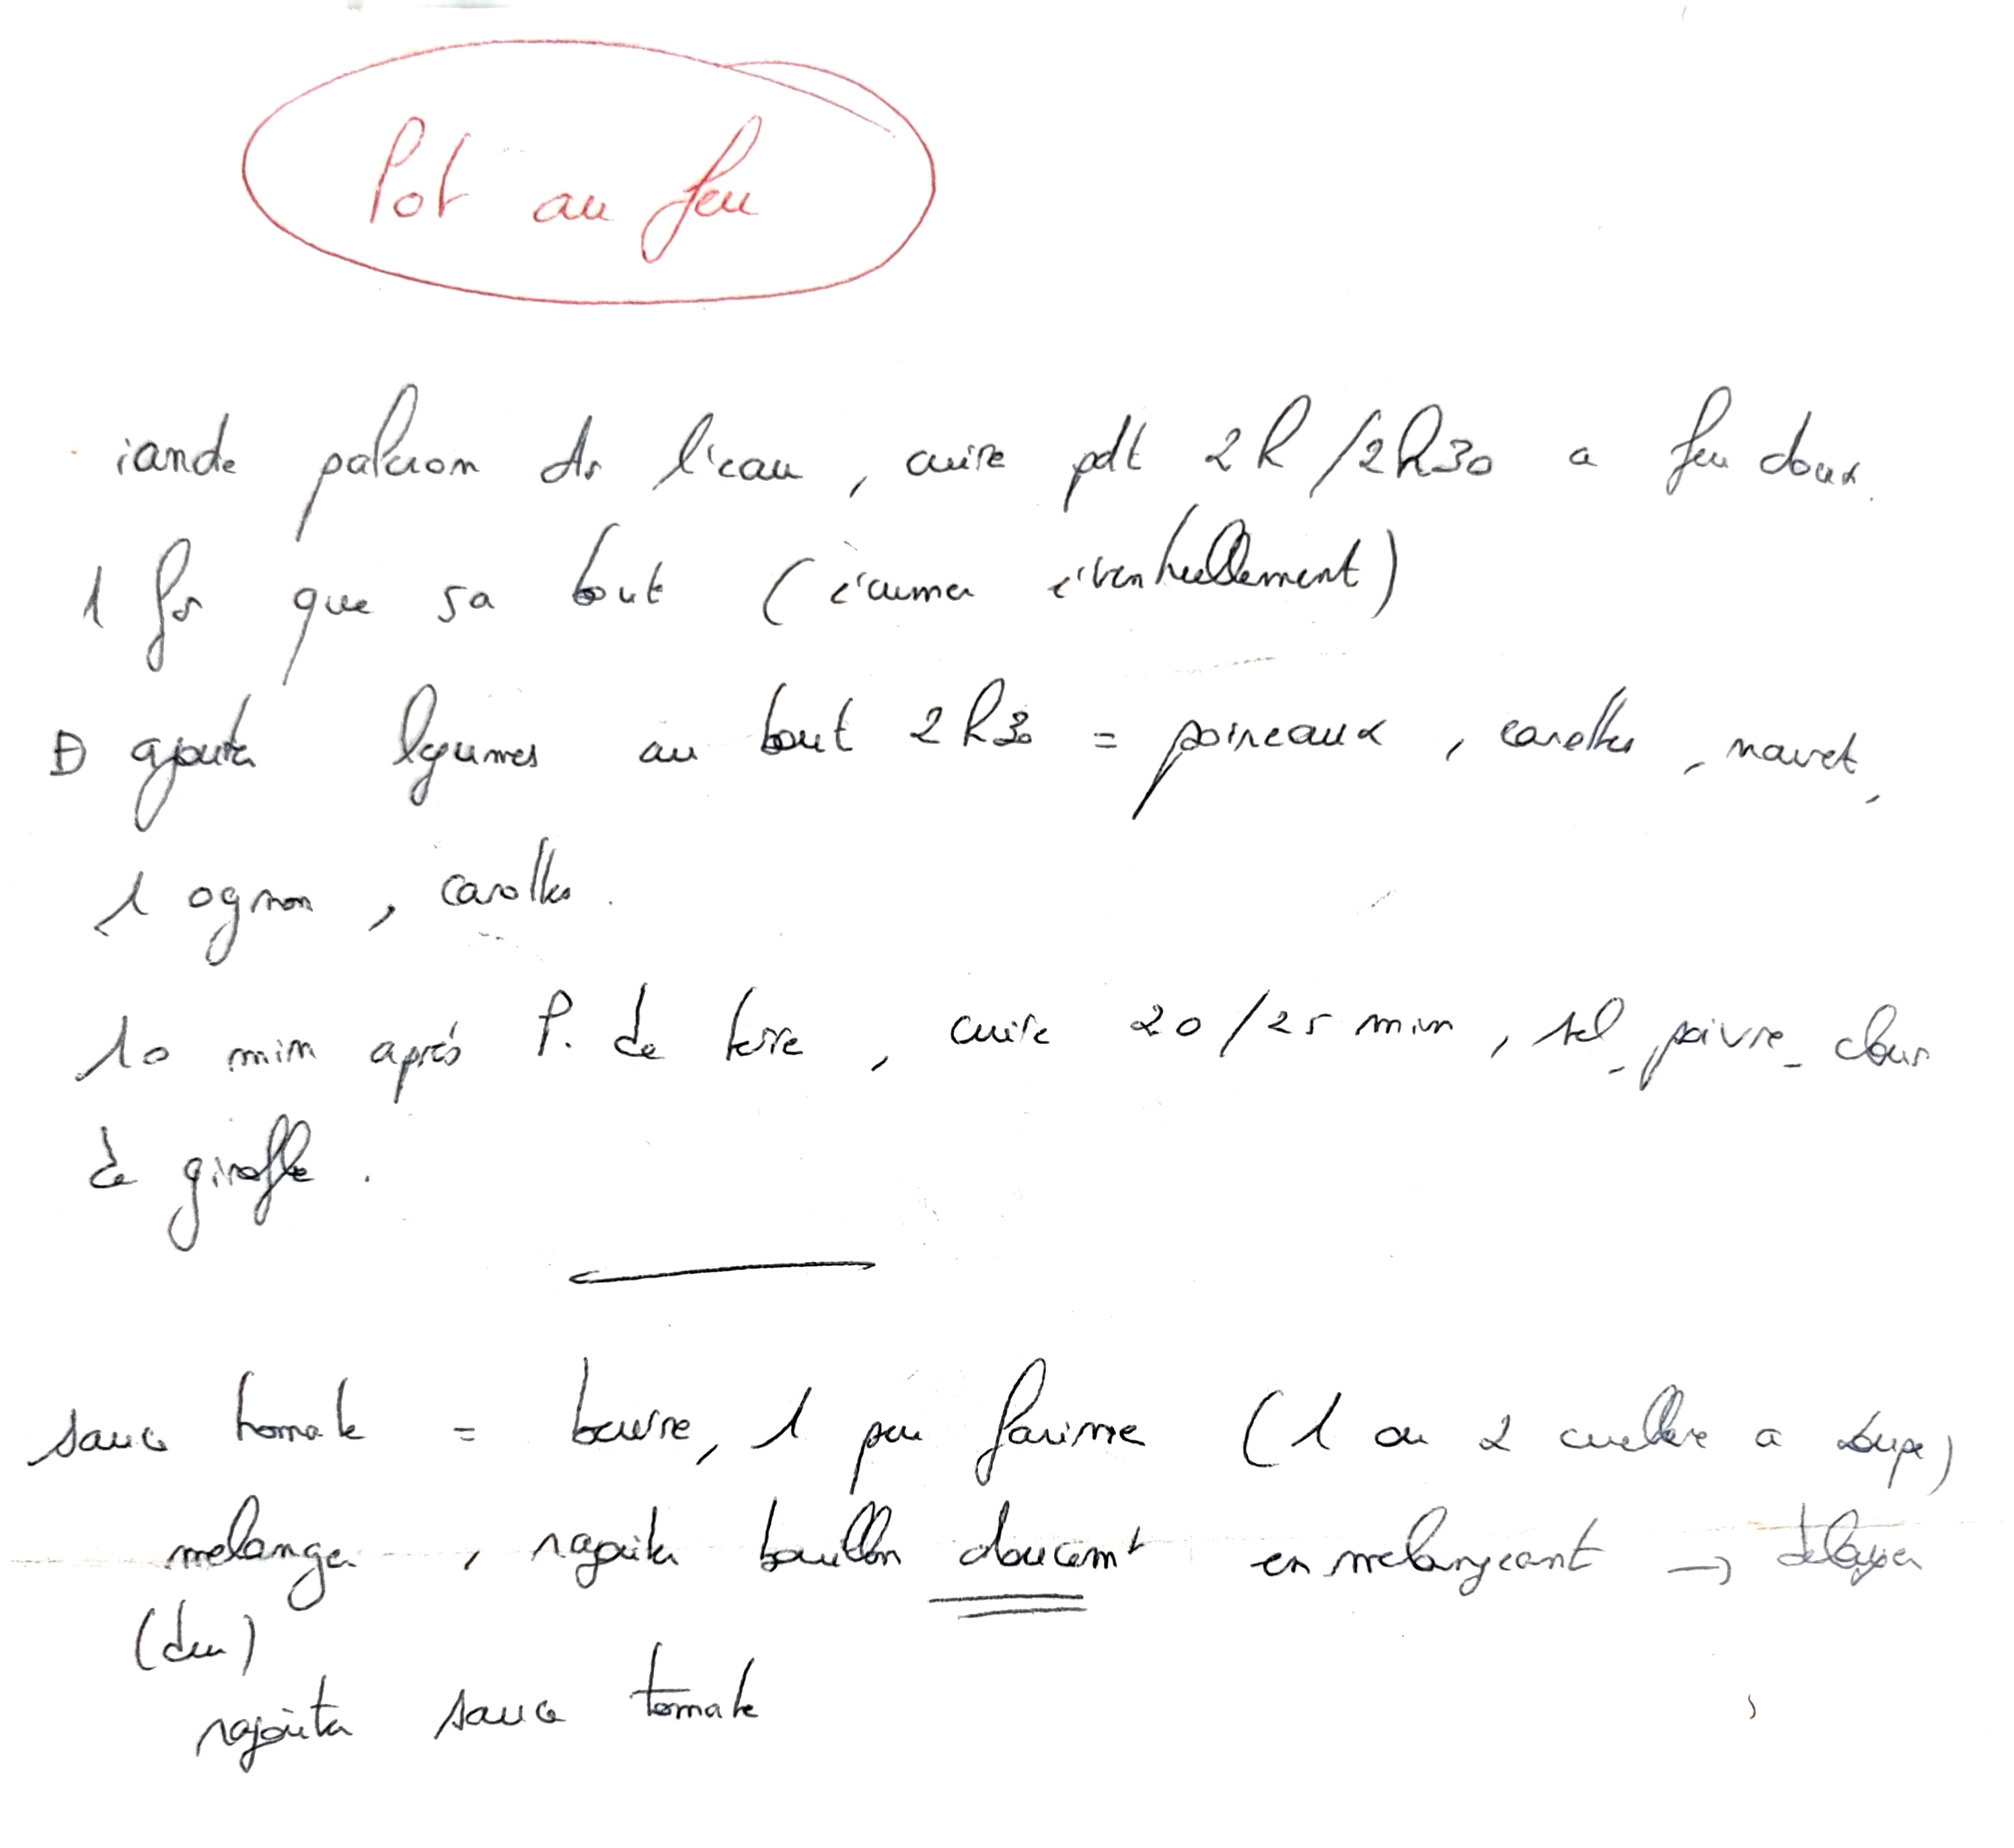 Pot au feu
iande paleron ds l'eau, cuire pdt 2h/2h30 a feu doux.
1 fois que sa bout (écumer éventuellement)
ajouter légumes au bout 2h30 = poireaux, carottes, navet,
1 ognon, carottes.
10 min après P. de terre, cuire 20/25 min, sel, poivre, clous
de giroffle.
sauce tomate = beurre, 1 peu farine (1 ou 2 cuellere a soupe)
melanger, rajouter bouillon doucemt en melangeant → délayer
rajouter sauce tomate